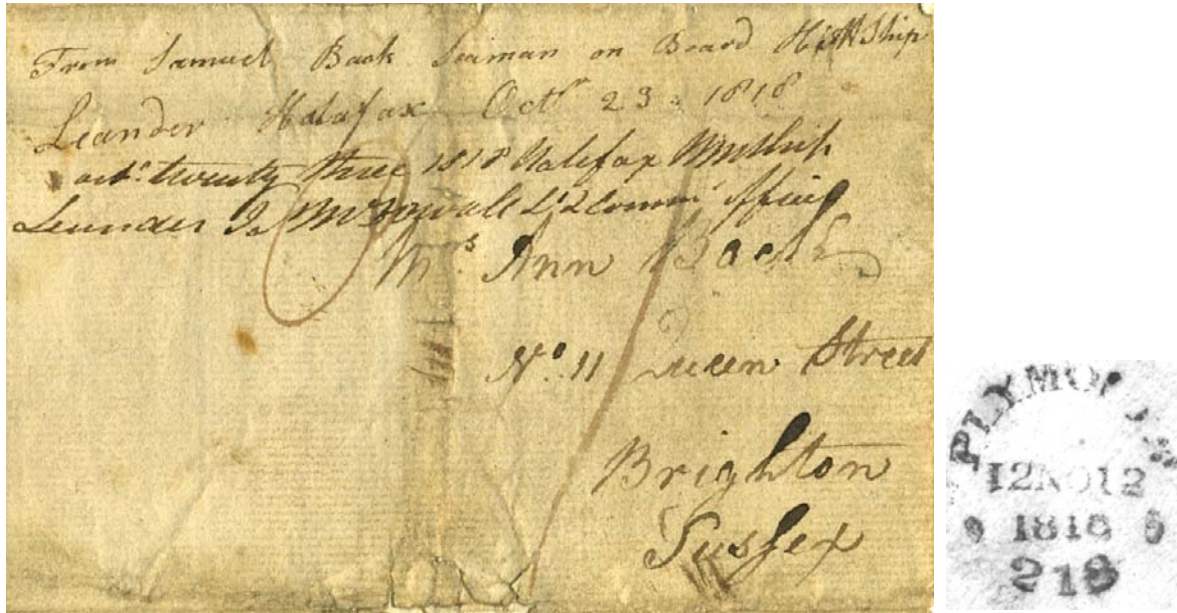 From Samuel Back Seaman on Board His M Ship
Leander Halafax Octr 23 1818
octr. twenty three 1818 Halifax HM Ship
Leander J. McDowall Lt & Comm Officer
Mrs Ann Back
No. 11 Queen Street
Brighton
Sussex
PLYMOUTH
12NO12
1818
218